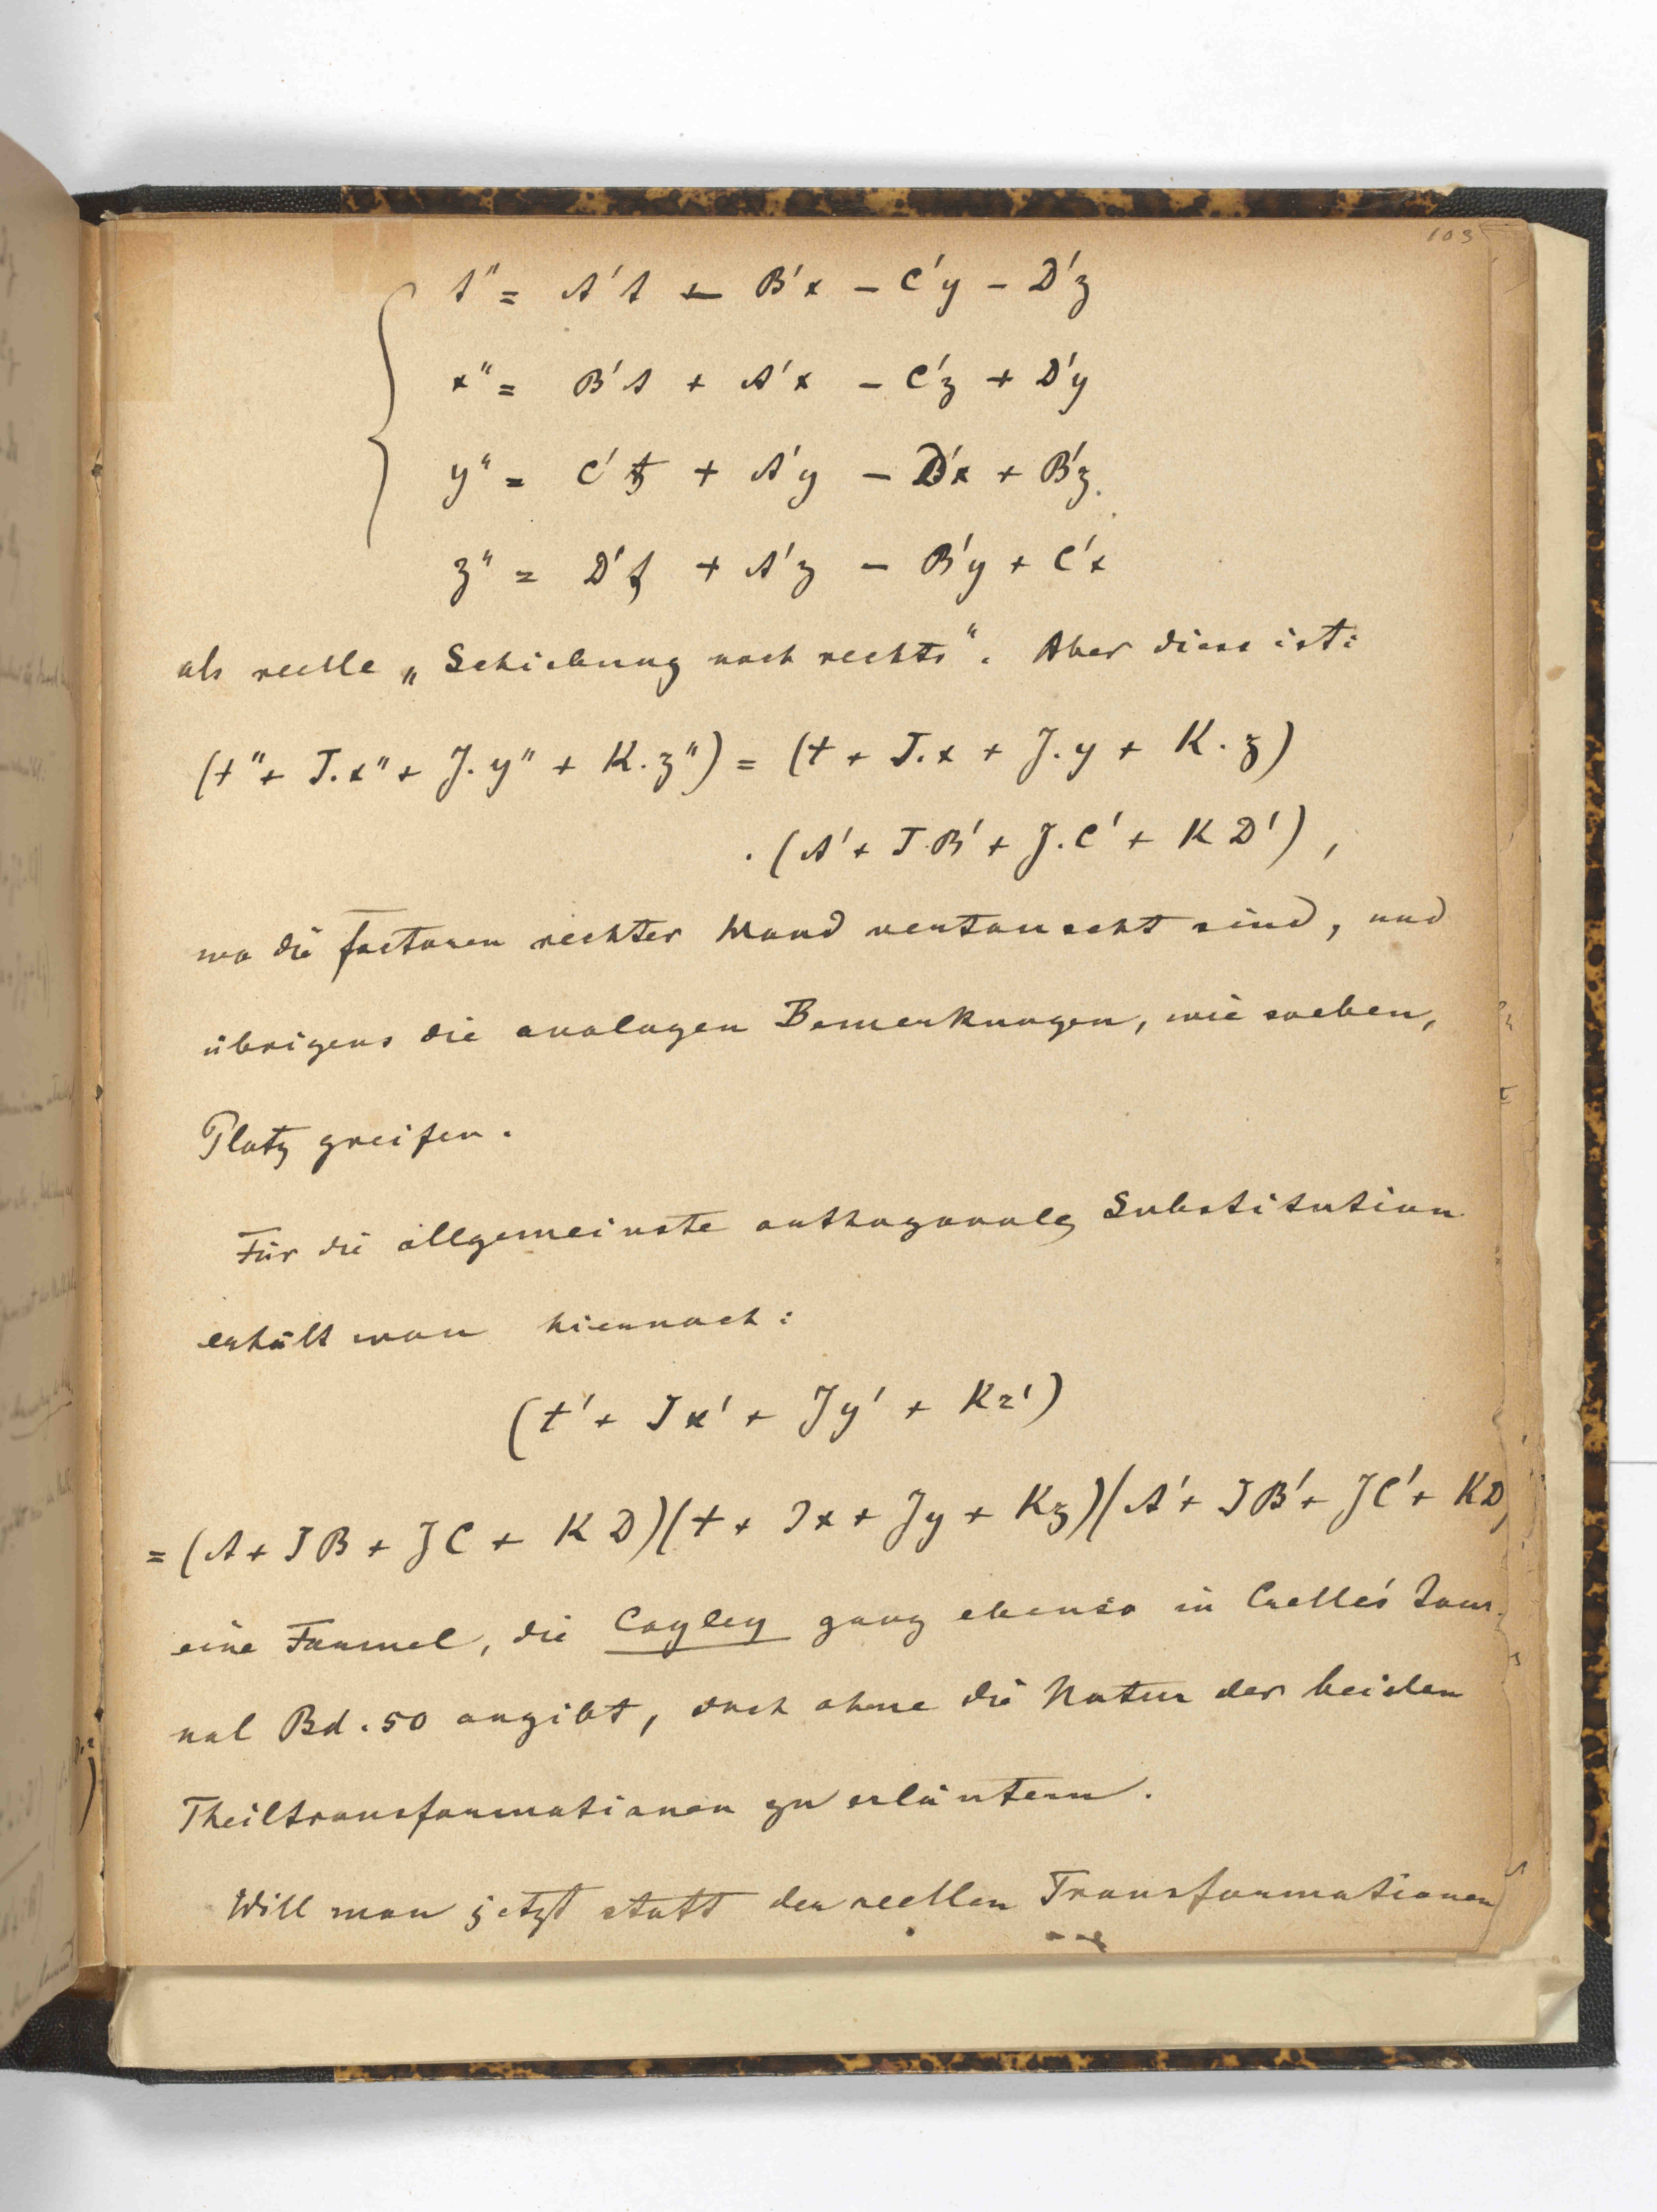 103
t" = A't - B'x - C'y - D'z
x" = B't + A'x - C'z + D'y
y" = C't + A'y - D'x + B'z
z" = D't + A'z - B'y + C'x
als reelle „Schiebung nach rechts". Aber diess ist:
(t" + J.x" + J.y" + K.z") = (t + J.x + J.y + K.z)
. (A' + J.B' + J.C' + K D') ,
wo die Factoren rechter Hand vertauscht sind, und
übrigens die analogen Bemerkungen, wie soeben,
Platz greifen.
Für die allgemeinste orthogonale Substitution
erhält man hiernach:
(t' + Jx' + Jy' + Kz')
= (A + JB + JC + KD)(t + Jx + Jy + Kz)(A' + JB' + JC' + KD)
eine Formel, die Cayley ganz ebenso in Crelle's Jour-
nal Bd. 50 angibt, doch ohne die Natur der beiden
Theiltransformationen zu erläutern.
Will man jetzt statt der reellen Transformationen